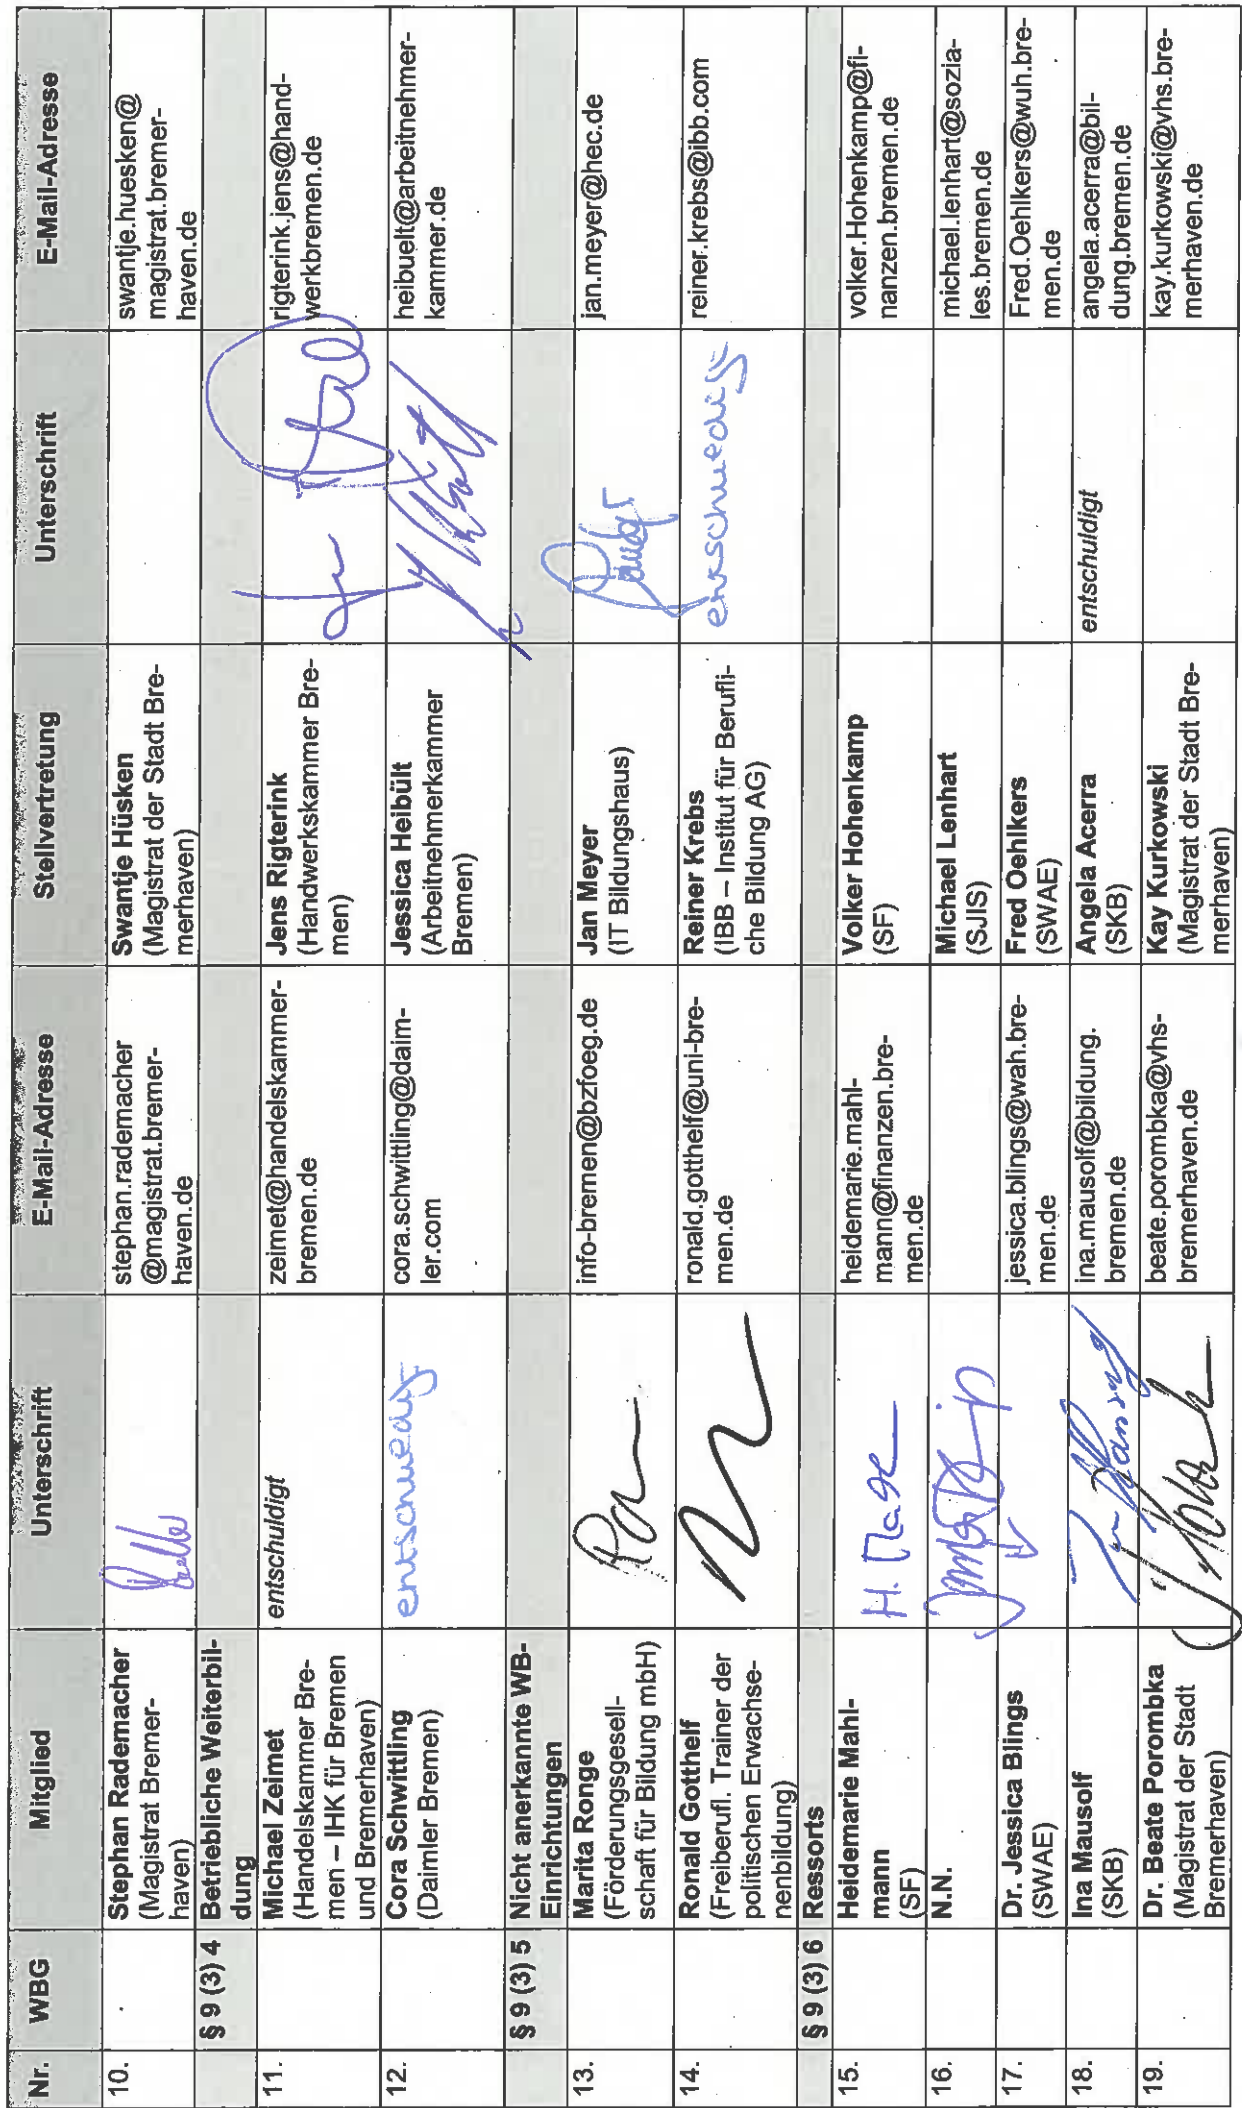 Nr. WBG Mitglied Unterschrift E-Mail-Adresse Stellvertretung Unterschrift E-Mail-Adresse
10.
Stephan Rademacher
(Magistrat Bremer-
haven)
stephan.rademacher
@magistrat.bremer-
haven.de
Swantje Hüsken
(Magistrat der Stadt Bre-
merhaven)
swantje.huesken@
magistrat.bremer-
haven.de
§ 9 (3) 4
Betriebliche Weiterbil-
dung
11.
Michael Zeimet
(Handelskammer Bre-
men – IHK für Bremen
und Bremerhaven)
entschuldigt
zeimet@handelskammer-
bremen.de
Jens Rigterink
(Handwerkskammer Bre-
men)
rigterink.jens@hand-
werkbremen.de
12.
Cora Schwittling
(Daimler Bremen)
entschuedigt
cora.schwittling@daim-
ler.com
Jessica Heibült
(Arbeitnehmerkammer
Bremen)
heibuelt@arbeitnehmer-
kammer.de
§ 9 (3) 5
Nicht anerkannte WB-
Einrichtungen
13.
Marita Ronge
(Förderungsgesell-
schaft für Bildung mbH)
info-bremen@bzfoeg.de
Jan Meyer
(IT Bildungshaus)
jan.meyer@hec.de
14.
Ronald Gotthelf
(Freiberufl. Trainer der
politischen Erwachse-
nenbildung)
ronald.gotthelf@uni-bre-
men.de
Reiner Krebs
(IBB – Institut für Berufli-
che Bildung AG)
entschuedigt
reiner.krebs@ibb.com
§ 9 (3) 6
Ressorts
15.
Heidemarie Mahl-
mann
(SF)
H.
heidemarie.mahl-
mann@finanzen.bre-
men.de
Volker Hohenkamp
(SF)
volker.Hohenkamp@fi-
nanzen.bremen.de
16.
N.N.
Michael Lenhart
(SJIS)
michael.lenhart@sozia-
les.bremen.de
17.
Dr. Jessica Blings
(SWAE)
jessica.blings@wah.bre-
men.de
Fred Oehlkers
(SWAE)
Fred.Oehlkers@wuh.bre-
men.de
18.
Ina Mausolf
(SKB)
ina.mausolf@bildung.
bremen.de
Angela Acerra
(SKB)
entschuldigt
angela.acerra@bil-
dung.bremen.de
19.
Dr. Beate Porombka
(Magistrat der Stadt
Bremerhaven)
beate.porombka@vhs-
bremerhaven.de
Kay Kurkowski
(Magistrat der Stadt Bre-
merhaven)
kay.kurkowski@vhs.bre-
merhaven.de